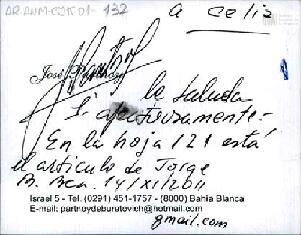 AR-ANM-CJTD1-132
a Celia
José Partnoy
le saluda
afectuosamente.-
En la hoja 121 está
el articulo de Jorge
B. Bca. 14/XI/2011
Israel 5 - Tel. (0291) 451-1757 - (8000) Bahia Blanca
E-mail: partnoydeburatovich@hotmail.com
gmail.com